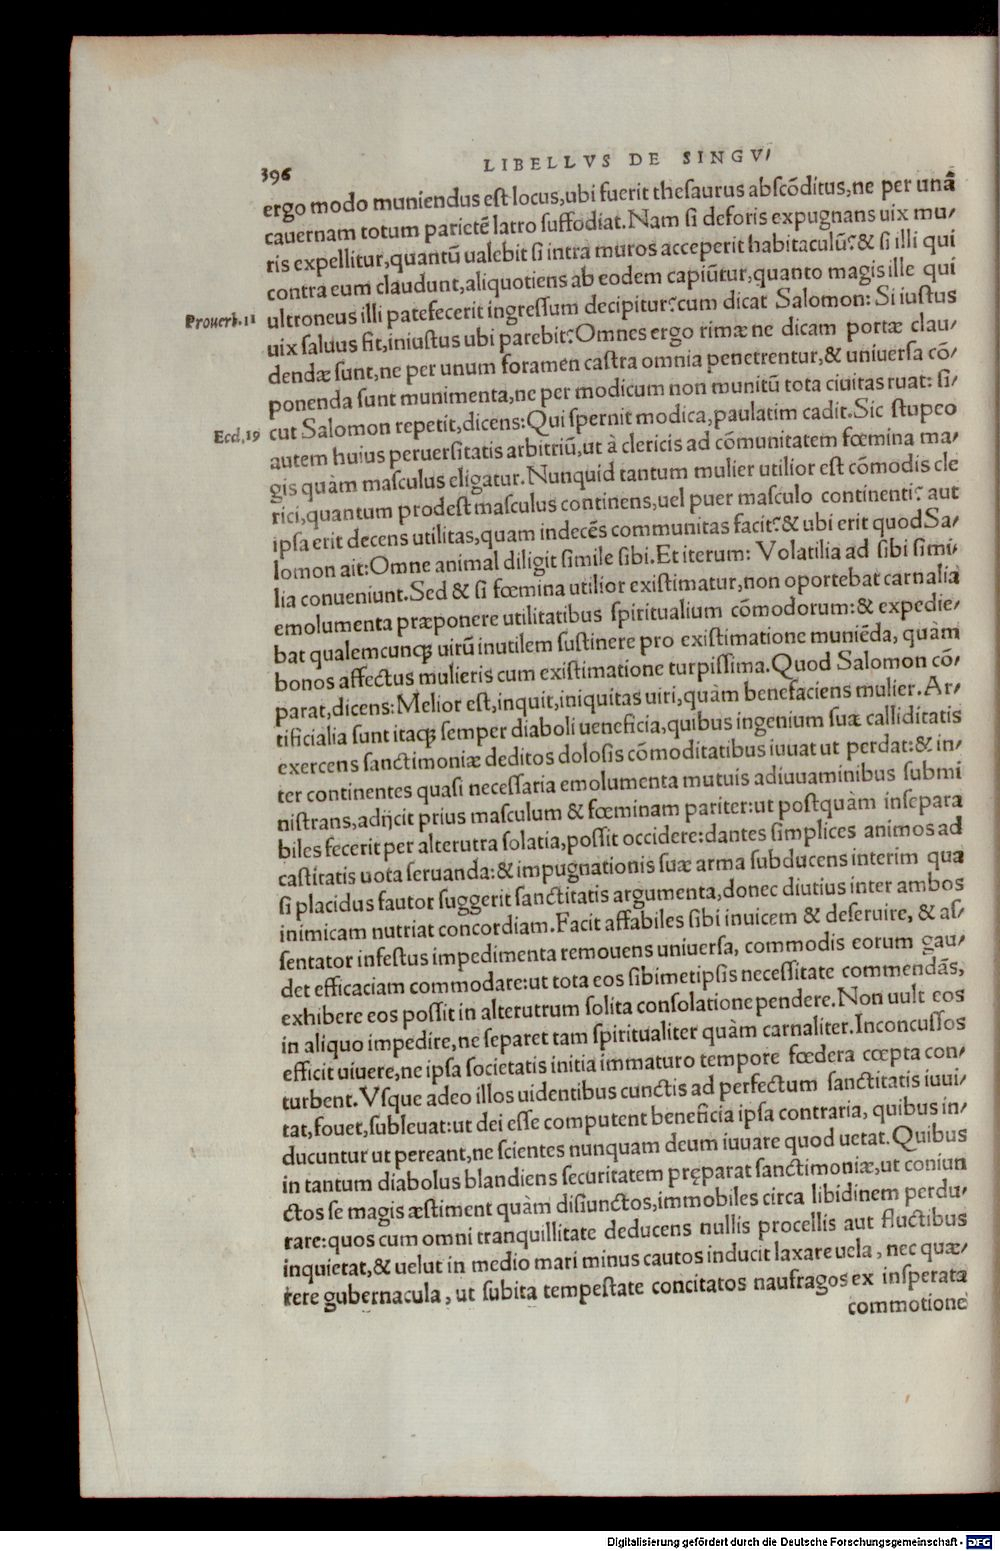 396
LIBELLVS DE SINGV/
ergo modo muniendus est locus,ubi fuerit thesaurus abscõditus,ne per unã
cauernam totum parietẽ latro suffodiat.Nam si deforis expugnans uix mu/
ris expellitur,quantũ ualebit si intra muros acceperit habitaculũ?& si illi qui
contra eum claudunt,aliquotiens ab eodem capiũtur,quanto magis ille qui
ultroneus illi patefecerit ingressum decipitur?cum dicat Salomon: Si iustus
Prouerb.11
uix saluus fit,iniustus ubi parebit?Omnes ergo rimæ ne dicam portæ clau/
dendæ sunt,ne per unum foramen castra omnia penetrentur,& uniuersa cõ/
ponenda sunt munimenta,ne per modicum non munitũ tota ciuitas ruat: si/
cut Salomon repetit,dicens:Qui spernit modica,paulatim cadit.Sic stupeo
Eccl.19
autem huius peruersitatis arbitriũ,ut à clericis ad cõmunitatem fœmina ma/
gis quàm masculus eligatur.Nunquid tantum mulier utilior est cõmodis cle
rici,quantum prodest masculus continens,uel puer masculo continenti? aut
ipsa erit decens utilitas,quam indecẽs communitas facit?& ubi erit quod Sa/
lomon ait:Omne animal diligit simile sibi.Et iterum: Volatilia ad sibi simi/
lia conueniunt.Sed & si fœmina utilior existimatur,non oportebat carnalia
emolumenta præponere utilitatibus spiritualium cõmodorum:& expedie/
bat qualemcunqꝫ uirũ inutilem sustinere pro existimatione muniẽda, quàm
bonos affectus mulieris cum existimatione turpissima.Quod Salomon cõ/
parat,dicens:Melior est,inquit,iniquitas uiri,quàm benefaciens mulier.Ar/
tificialia sunt itaqꝫ semper diaboli ueneficia,quibus ingenium suæ calliditatis
exercens sanctimoniæ deditos dolosis cõmoditatibus iuuat ut perdat:& in/
ter continentes quasi necessaria emolumenta mutuis adiuuaminibus submi
nistrans,adijcit prius masculum & fœminam pariter:ut postquàm insepara
biles fecerit per alterutra solatia,possit occidere:dantes simplices animos ad
castitatis uota seruanda:& impugnationis suæ arma subducens interim qua
si placidus fautor suggerit sanctitatis argumenta,donec diutius inter ambos
inimicam nutriat concordiam.Facit affabiles sibi inuicem & deseruire, & as/
sentator infestus impedimenta remouens uniuersa, commodis eorum gau/
det efficaciam commodare:ut tota eos sibimetipsis necessitate commendãs,
exhibere eos possit in alterutrum solita consolatione pendere.Non uult eos
in aliquo impedire,ne separet tam spiritualiter quàm carnaliter.Inconcussos
efficit uiuere,ne ipsa societatis initia immaturo tempore fœdera cœpta con/
turbent.Vsque adeo illos uidentibus cunctis ad perfectum sanctitatis iuui/
tat,fouet,subleuat:ut dei esse computent beneficia ipsa contraria, quibus in/
ducuntur ut pereant,ne scientes nunquam deum iuuare quod uetat.Quibus
in tantum diabolus blandiens securitatem pręparat sanctimoniæ,ut coniun
ctos se magis æstiment quàm disiunctos,immobiles circa libidinem perdu/
rare:quos cum omni tranquillitate deducens nullis procellis aut fluctibus
inquietat,& uelut in medio mari minus cautos inducit laxare uela , nec quæ/
rere gubernacula , ut subita tempestate concitatos naufragos ex insperata
commotione
Digitalisierung gefördert durch die Deutsche Forschungsgemeinschaft - DFG